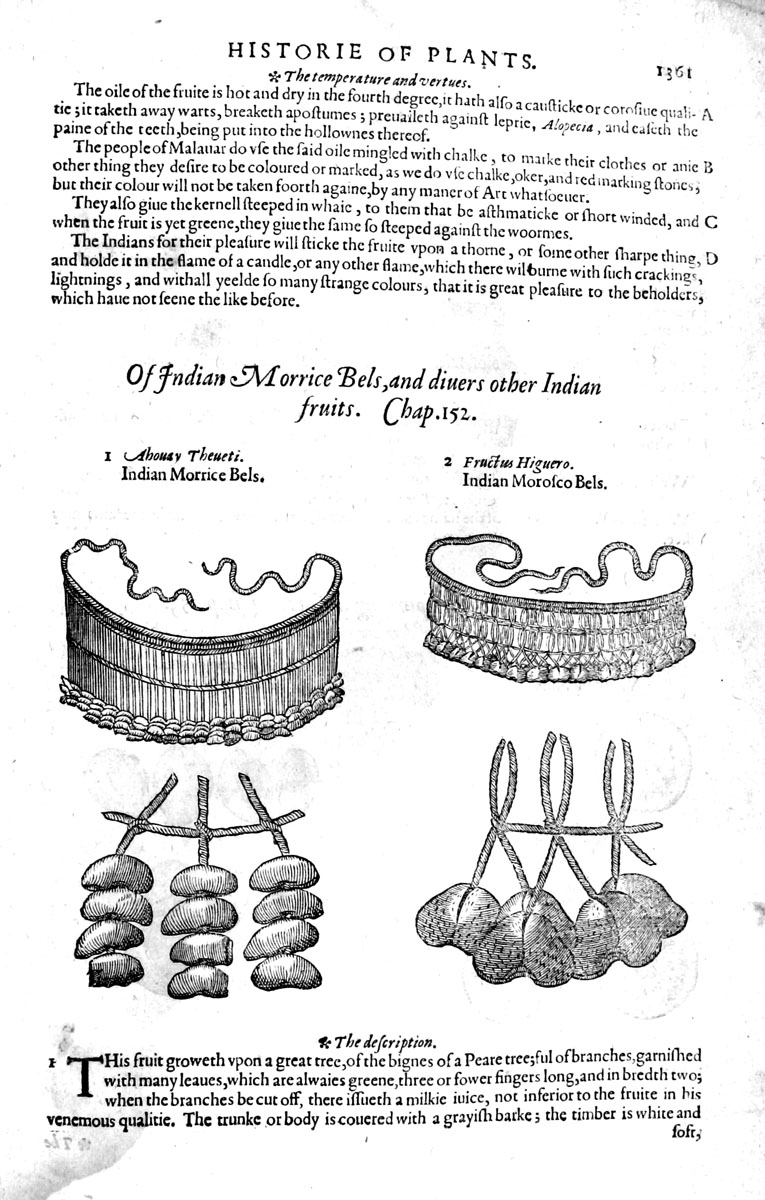 HISTORIE OF PLANTS. 1361
❧ The temperature and vertues.
The oile of the fruite is hot and dry in the fourth degree,it hath alſo a cauſticke or coroſiue quali- A
tie ; it taketh away warts, breaketh apoſtumes ; preuaileth againſt leprie, Alopecia , and eaſeth the
paine of the teeth,being put into the hollownes thereof.
The people of Malauar do vſe the ſaid oile mingled with chalke , to marke their clothes or anie B
other thing they deſire to be coloured or marked, as we do vſe chalke,oker,and red marking ſtones;
but their colour will not be taken foorth againe,by any maner of Art whatſoeuer.
They alſo giue the kernell ſteeped in whaie , to them that be aſthmaticke or ſhort winded, and C
when the fruit is yet greene,they giue the ſame ſo ſteeped againſt the woormes.
The Indians for their pleaſure will ſticke the fruite vpon a thorne, or ſome other ſharpe thing, D
and holde it in the flame of a candle,or any other flame,which there wil burne with ſuch crackings,
lightnings , and withall yeelde ſo many ſtrange colours, that it is great pleaſure to the beholders,
which haue not ſeene the like before.
Of Indian Morrice Bels,and diuers other Indian
fruits. Chap.152.
1 Ahouay Theueti.
Indian Morrice Bels.
2 Fructus Higuero.
Indian Moroſco Bels.
❧ The deſcription.
1 THis fruit groweth vpon a great tree,of the bignes of a Peare tree;ful of branches,garniſhed
with many leaues,which are alwaies greene,three or fower fingers long,and in bredth two;
when the branches be cut off, there iſſueth a milkie iuice, not inferior to the fruite in his
venemous qualitie. The trunke or body is couered with a grayiſh barke ; the timber is white and
ſoft;